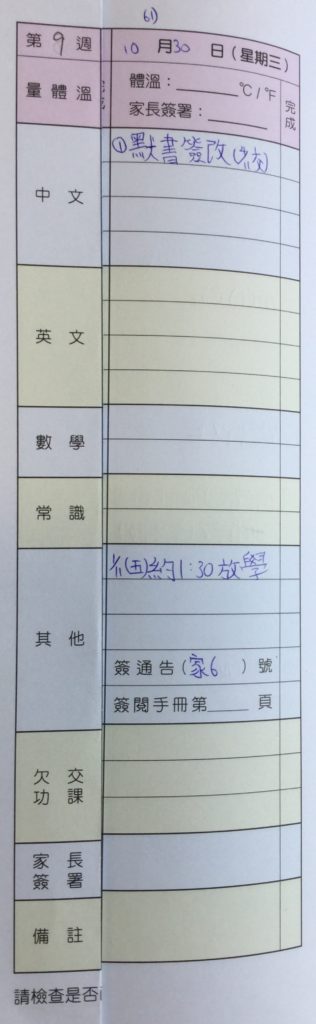 61)
第 9 週 10 月 30 日 (星期三)
量體溫 體溫：______°C / °F 完成
家長簽署：______
中文 ①默書簽改(必交)
英文
數學
常識
其他 1/11(五)約1:30放學
簽通告(家6 )號
簽閱手冊第____頁
欠交功課
家長簽署
備註
請檢查是否